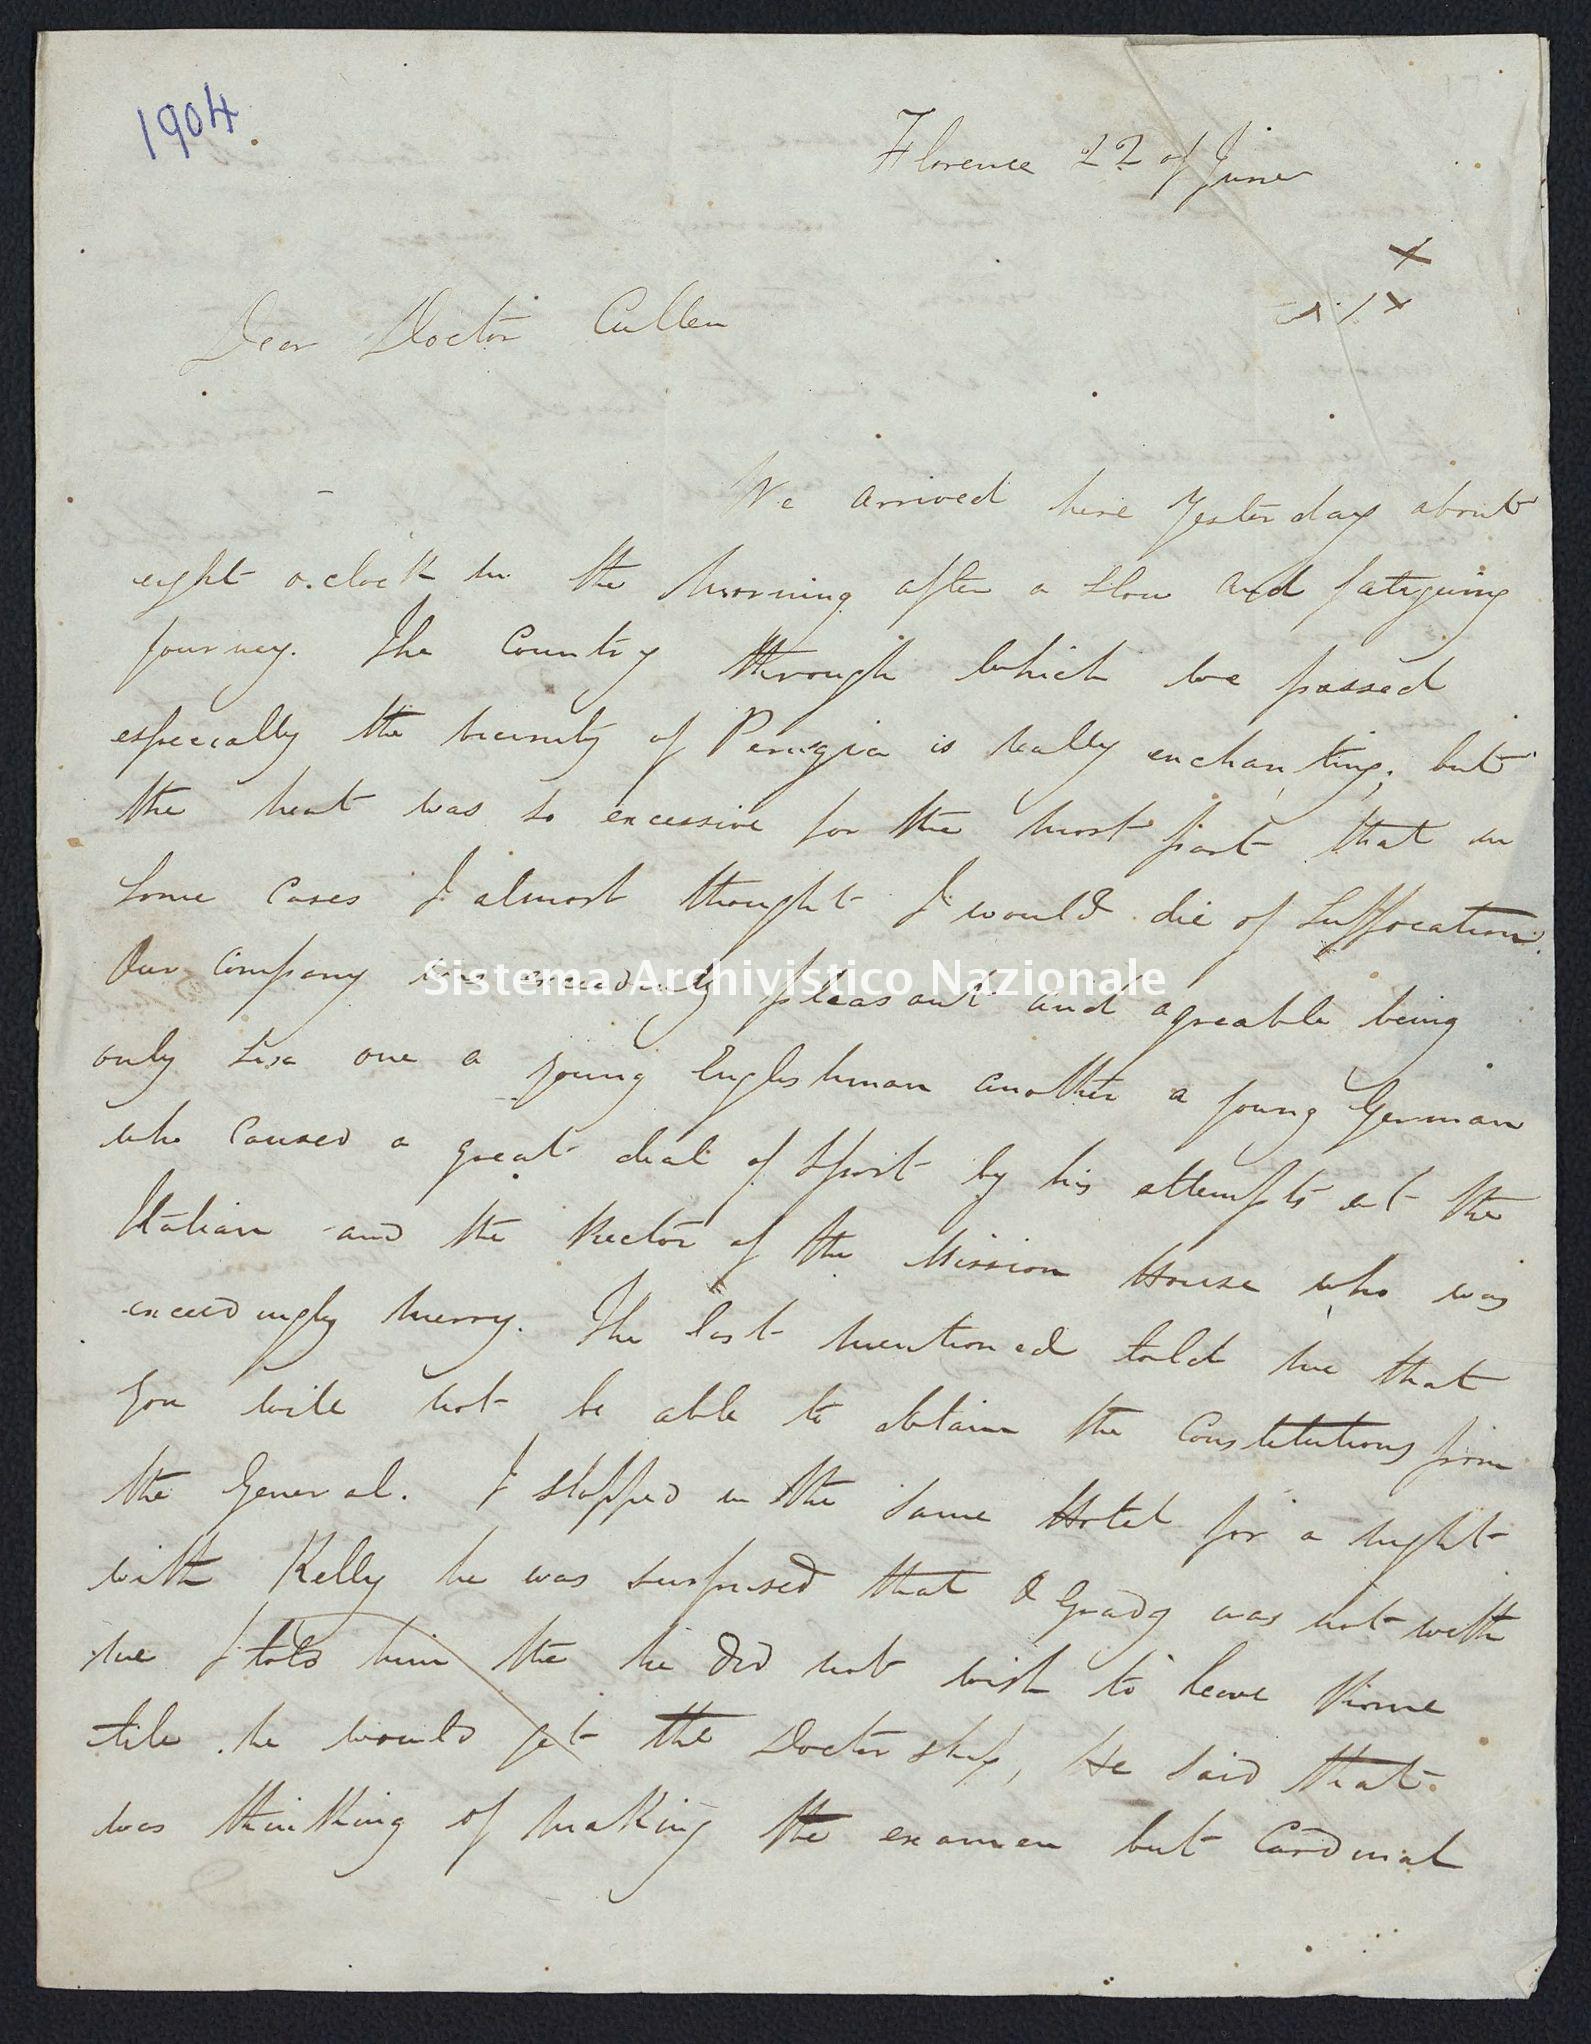 1904
Florence 22 of June
Dear Doctor Cullen
We arrived here Yesterday about
eight o.clock in the morning after a slow and fatiguing
journey. The Country through which we passed
especially the vicinity of Perugia is really enchanting; but
the heat was so excessive for the most part that in
some cases I almost thought I would die of Suffocation.
Our Company was exceedingly pleasant and agreable being
Sistema Archivistico Nazionale
only six one a young Englishman another a young German
who caused a great deal of sport by his attempts at the
Italian and the Rector of the Mission House who was
exceedingly merry. The last mentioned told me that
you will not be able to obtain the Constitutions from
the General. I stopped in the same Hotel for a night
with Kelly he was surprised that O Grady was not with
me I told him the he did not wish to leave Rome
till he would get the Doctorship, He said that
was thinking of making the examen but Cardinal